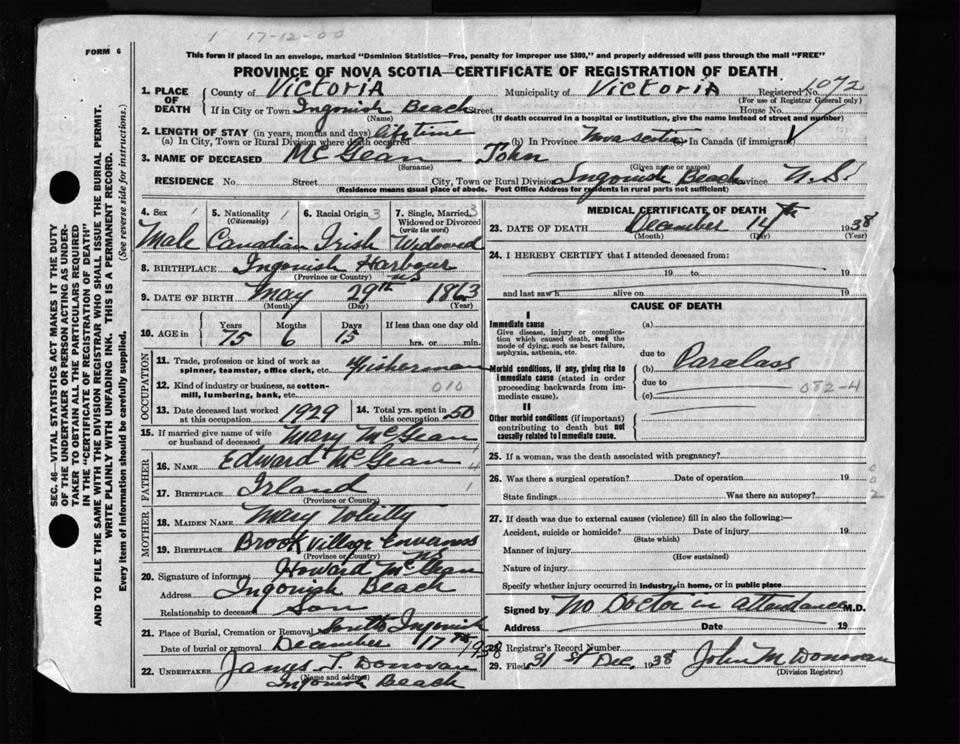 1 17-12-00
FORM 6
This form if placed in an envelope, marked "Dominion Statistics—Free, penalty for improper use $300," and properly addressed will pass through the mail "FREE"
PROVINCE OF NOVA SCOTIA—CERTIFICATE OF REGISTRATION OF DEATH
1. PLACE OF DEATH County of Victoria Municipality of Victoria Registered No. 1072
(For use of Registrar General only)
If in City or Town Ingonish Beach Street House No.
(Name) (If death occurred in a hospital or institution, give the name instead of street and number)
2. LENGTH OF STAY (in years, months and days) lifetime
(a) In City, Town or Rural Division where death occurred (b) In Province Nova Scotia (c) In Canada (if immigrant)
3. NAME OF DECEASED McGean John
(Surname) (Given name or names)
RESIDENCE No Street City, Town or Rural Division Ingonish Beach Province N.S.
(Residence means usual place of abode. Post Office Address for residents in rural parts not sufficient)
4. Sex 1 5. Nationality 1 (Citizenship) 6. Racial Origin 3 7. Single, Married, Widowed or Divorced (write the word) 3
Male Canadian Irish Widowed
8. BIRTHPLACE Ingonish Harbour NS
(Province or Country)
9. DATE OF BIRTH May 29th 1863
(Month) (Day) (Year)
10. AGE in Years Months Days If less than one day old
75 6 15 hrs. or min.
OCCUPATION
11. Trade, profession or kind of work as spinner, teamster, office clerk, etc. Fisherman
12. Kind of industry or business, as cotton-mill, lumbering, bank, etc. 010
13. Date deceased last worked at this occupation 1929 14. Total yrs. spent in 50
15. If married give name of wife or husband of deceased Mary McGean
FATHER
16. NAME Edward McGean
17. BIRTHPLACE Irland 1
(Province or Country)
MOTHER
18. MAIDEN NAME Mary Whitty
19. BIRTHPLACE Brook Village Enverness NS
(Province or Country)
20. Signature of informant Howard McGean
Address Ingonish Beach
Relationship to deceased Son
21. Place of Burial, Cremation or Removal South Ingonish
Date of burial or removal December 17th 1938
22. UNDERTAKER James T. Donovan
(Name and address)
Ingonish Beach
MEDICAL CERTIFICATE OF DEATH
23. DATE OF DEATH December 14th 1938
(Month) (Day) (Year)
24. I HEREBY CERTIFY that I attended deceased from:
19 to 19
and last saw h alive on 19
CAUSE OF DEATH
I
Immediate cause
Give disease, injury or complication which caused death, not the mode of dying, such as heart failure, asphyxia, asthenia, etc.
(a)
due to
Morbid conditions, if any, giving rise to immediate cause (stated in order proceeding backwards from immediate cause).
(b) Paralass
due to 082-4
(c)
II
Other morbid conditions (if important) contributing to death but not causally related to immediate cause.
25. If a woman, was the death associated with pregnancy?
26. Was there a surgical operation? Date of operation 19
State findings Was there an autopsy?
0
0
2
27. If death was due to external causes (violence) fill in also the following:—
Accident, suicide or homicide? Date of injury 19
(State which)
Manner of injury
(How sustained)
Nature of injury
Specify whether injury occurred in industry, in home, or in public place
Signed by No Doctor in attendance M.D.
Address Date 19
28. Registrar's Record Number
29. Filed 31st Dec, 1938 John M Donovan
(Division Registrar)
SEC. 46—VITAL STATISTICS ACT MAKES IT THE DUTY
OF THE UNDERTAKER OR PERSON ACTING AS UNDER-
TAKER TO OBTAIN ALL THE PARTICULARS REQUIRED
IN THE "CERTIFICATE OF REGISTRATION OF DEATH"
AND TO FILE THE SAME WITH THE DIVISION REGISTRAR WHO SHALL ISSUE THE BURIAL PERMIT.
WRITE PLAINLY WITH UNFADING INK. THIS IS A PERMANENT RECORD.
Every item of information should be carefully supplied. (See reverse side for instructions.)